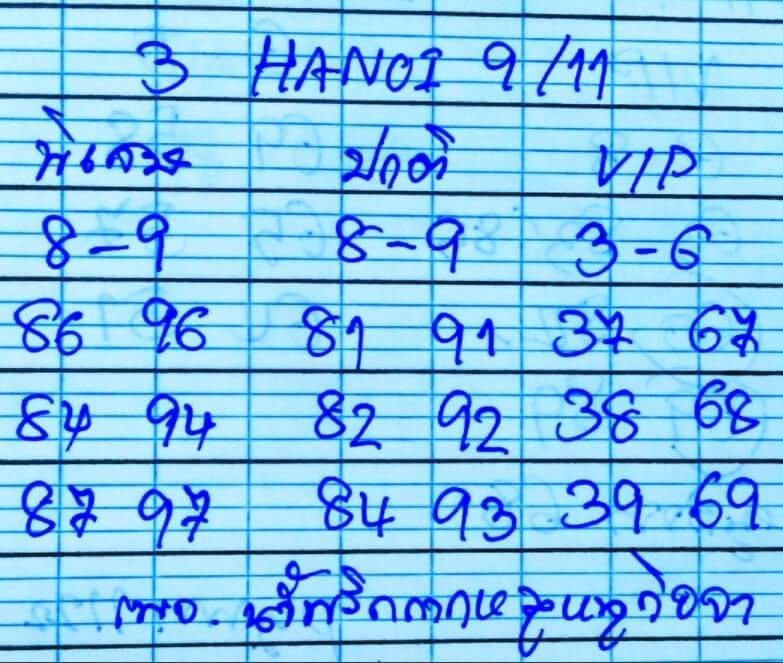 3 HANOI 9/11
พิเศษ ปกติ VIP
8-9 8-9 3-6
86 96 81 91 37 67
84 94 82 92 38 68
87 97 84 93 39 69
เพจ. น้ำพริกกากหมู